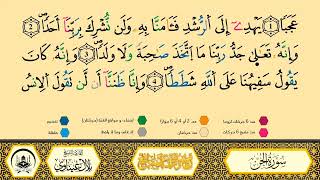 عَجَبًا ١ يَهْدِے إِلَى اَلرُّشْدِ فَـَٔامَنَّا بِهِۦ وَلَن نُّشْرِكَ بِرَبِّنَا أَحَدًا ٢
وَإِنَّهُۥ تَعَٰلَىٰ جَدُّ رَبِّنَا مَا اَتَّخَذَ صَٰحِبَةً وَلَا وَلَدًا ٣ وَإِنَّهُۥ كَانَ
يَقُولُ سَفِيهُنَا عَلَى اَللَّهِ شَطَطًا ٤ وَإِنَّا ظَنَنَّا أَن لَّن تَقُولَ اَلْإِنسُ
مد 6 حركات لزوما مد 2 أو 4 أو 6 جوازا إخفاء، و مواقع الغنة (حركتان) تفخيم
مد مشبع 6 حركات مد حركتان إدغام، وما لا يلفظ قلقلة
سورة الجن